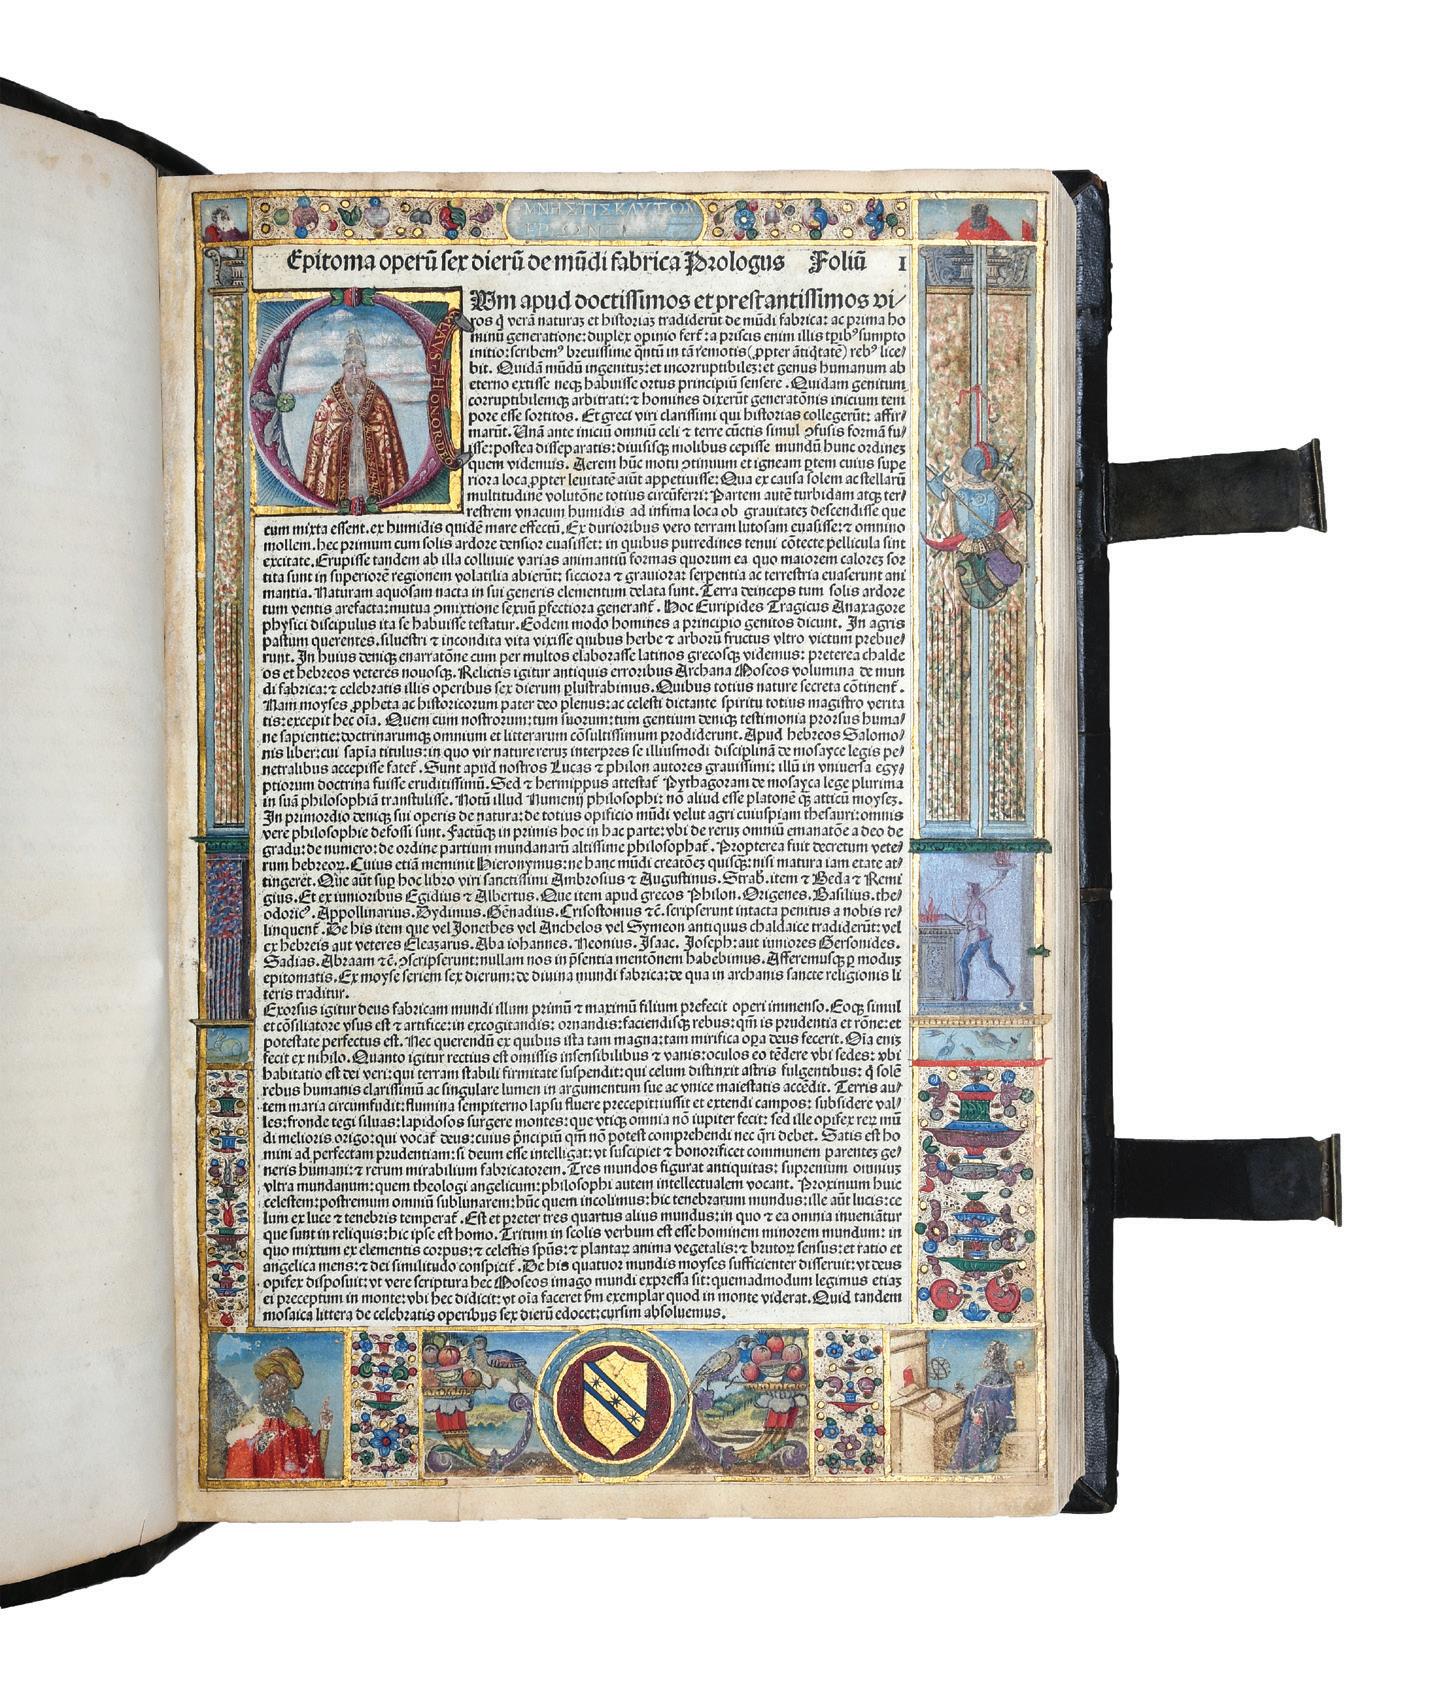 ΜΝΗΣΤΙΣ ΚΛΥΤΩΝ
Epitoma operū sex dierū de mūdi fabrica Prologus Foliū I
LAVS HONOR DEO
Vm apud doctissimos et prestantissimos vi/
ros q̄ verā naturaʒ et historiaʒ tradiderūt de mūdi fabrica: ac prima ho
minū generatione: duplex opinio fert᷑: a priscis enim illis tꝑibꝰ sumpto
initio: scribemꝰ breuissime q̄ntū in tā remotis (ꝓpter ātiq̄tatē) rebꝰ lice/
bit. Quidā mūdū ingenituʒ: et incorruptibileʒ: et genus humanum ab
eterno extisse neqꝫ habuisse ortus principiū sensere. Quidam genitum
corruptibilemqꝫ arbitrati: ⁊ homines dixerūt generatōnis inicium tem
pore esse sortitos. Et greci viri clarissimi qui historias collegerūt: affir/
marūt. Vnā ante iniciū omniū celi ⁊ terre cūctis simul ꝯfusis formā fu/
isse: postea disseparatis: diuisisqꝫ molibus cepisse mundū hunc ordineʒ
quem videmus. Aerem hūc motū ꝯtinuum et igneam ꝑtem cuius supe
riora loca ꝓpter leuitatē aiūt appetiuisse: Qua ex causa solem ac stellarū
multitudinē volutōne totius circūferri: Partem autē turbidam atqꝫ ter/
restrem vnacum humidis ad infima loca ob grauitateʒ descendisse que
cum mixta essent. ex humidis quidē mare effectū. Ex durioribus vero terram lutosam euasisse: ⁊ omnino
mollem. hec primum cum solis ardore densior euasisset: in quibus putredines tenui cōtecte pellicula sint
excitate. Erupisse tandem ab illa colluuie varias animantiū formas quorum ea quo maiorem caloreʒ sor
tita sunt in superiorē regionem volatilia abierūt: sicciora ⁊ grauiora: serpentia ac terrestria euaserunt ani
mantia. Naturam aquosam nacta in sui generis elementum delata sunt. Terra deinceps tum solis ardore
tum ventis arefacta: mutua ꝯmixtione sexuū ꝑfectiora generant᷑. Hoc Euripides Tragicus Anaxagore
physici discipulus ita se habuisse testatur. Eodem modo homines a principio genitos dicunt. In agris
pastum querentes. siluestri ⁊ incondita vita vixisse quibus herbe ⁊ arborū fructus vltro victum prebue/
runt. In huius deniqꝫ enarratōne cum per multos elaborasse latinos grecosqꝫ videmus: preterea chalde
os et hebreos veteres nouosqꝫ. Relictis igitur antiquis erroribus Archana Moseos volumina de mun
di fabrica: ⁊ celebratis illis operibus sex dierum ꝑlustrabimus. Quibus totius nature secreta cōtinent᷑.
Nam moyses ꝓpheta ac historicorum pater deo plenus: ac celesti dictante spiritu totius magistro verita
tis: excepit hec oīa. Quem cum nostrorum: tum suorum: tum gentium deniqꝫ testimonia prorsus huma/
ne sapientie: doctrinarumqꝫ omnium et litterarum cōsultissimum prodiderunt. Apud hebreos Salomo/
nis liber: cui sapīa titulus: in quo vir nature reruʒ interpres se illiusmodi disciplinā de mosayce legis pe/
netralibus accepisse fatet᷑. Sunt apud nostros Lucas ⁊ philon autores grauissimi: illū in vniuersa egy/
ptiorum doctrina fuisse eruditissimū. Sed ⁊ hermippus attestat᷑ Pythagoram de mosayca lege plurima
in suā philosophiā transtulisse. Notū illud Numenij philosophi: nō aliud esse platonē q̄ʒ atticū moyseʒ.
In primordio deniqꝫ sui operis de natura: de totius opificio mūdi velut agri cuiuspiam thesauri: omnis
vere philosophie defossi sunt. Factūqꝫ in primis hoc in hac parte: vbi de reruʒ omniū emanatōne a deo de
gradu: de numero: de ordine partium mundanarū altissime philosophat᷑. Propterea fuit decretum vete/
rum hebreoꝝ. Cuius etiā meminit Hieronymus: ne hanc mūdi creatōeʒ quisqꝫ: nisi matura iam etate at/
tingeret. Que aūt suꝑ hoc libro viri sanctissimi Ambrosius ⁊ Augustinus. Strab. item ⁊ Beda ⁊ Remi
gius. Et ex iunioribus Egidius ⁊ Albertus. Que item apud grecos Philon. Origenes. Basilius. the/
odoricꝰ. Appollinarius. Dydinus. Gēnadius. Crisostomus ⁊c̄. scripserunt intacta penitus a nobis re/
linquent᷑. De his item que vel Jonethes vel Anchelos vel Symeon antiquus chaldaice tradiderūt: vel
ex hebreis aut veteres Eleazarus. Aba iohannes. Neonius. Isaac. Joseph: aut iuniores Gersonides.
Sadias. Abraam ⁊c̄. ꝯscripserunt: nullam nos in p̄sentia mentōnem habebimus. Afferemusqꝫ ꝑ moduʒ
epitomatis. Ex moyse seriem sex dierum: de diuina mundi fabrica: de qua in archanis sancte religionis li
teris traditur.
Exorsus igitur deus fabricam mundi illum primū ⁊ maximū filium prefecit operi immenso. Eoqꝫ simul
et cōsiliatore vsus est ⁊ artifice: in excogitandis: ornandis: faciendisqꝫ rebus: qm̄ is prudentia et rōne: et
potestate perfectus est. Nec querendū ex quibus ista tam magna: tam mirifica oꝑa deus fecerit. Oīa eniʒ
fecit ex nihilo. Quanto igitur rectius est omissis insensibilibus ⁊ vanis: oculos eo tēdere vbi sedes: vbi
habitatio est dei veri: qui terram stabili firmitate suspendit: qui celum distinxit astris fulgentibus: q̄ solē
rebus humanis clarissimū ac singulare lumen in argumentum sue ac vnice maiestatis accēdit. Terris au/
tem maria circumfudit: flumina sempiterno lapsu fluere precepit: iussit et extendi campos: subsidere val/
les: fronde tegi siluas: lapidosos surgere montes: que vtiqꝫ omnia nō iupiter fecit: sed ille opifex reꝝ mū
di melioris origo: qui vocat᷑ deus: cuius p̄ncipiū qm̄ nō potest comprehendi nec q̄ri debet. Satis est ho
mini ad perfectam prudentiam: si deum esse intelligat: vt suscipiet ⁊ honorificet communem parenteʒ ge/
neris humani: ⁊ rerum mirabilium fabricatorem. Tres mundos figurat antiquitas: supremum omniuʒ
vltra mundanum: quem theologi angelicum: philosophi autem intellectualem vocant. Proximum huic
celestem: postremum omniū sublunarem: hūc quem incolimus: hic tenebrarum mundus: ille aūt lucis: ce
lum ex luce ⁊ tenebris temperat᷑. Est et preter tres quartus alius mundus: in quo ⁊ ea omnia inueniātur
que sunt in reliquis: hic ipse est homo. Tritum in scolis verbum est esse hominem minorem mundum: in
quo mixtum ex elementis corpus: ⁊ celestis spūs: ⁊ plantaꝝ anima vegetalis: ⁊ brutoꝝ sensus: et ratio et
angelica mens: ⁊ dei similitudo conspicit᷑. De his quatuor mundis moyses sufficienter disseruit: vt deus
opifex disposuit: vt vere scriptura hec Moseos imago mundi expressa sit: quemadmodum legimus etiaʒ
ei preceptum in monte: vbi hec didicit: vt oīa faceret ẜm exemplar quod in monte viderat. Quid tandem
mosaica littera de celebratis operibus sex dierū edocet: cursim absoluemus.